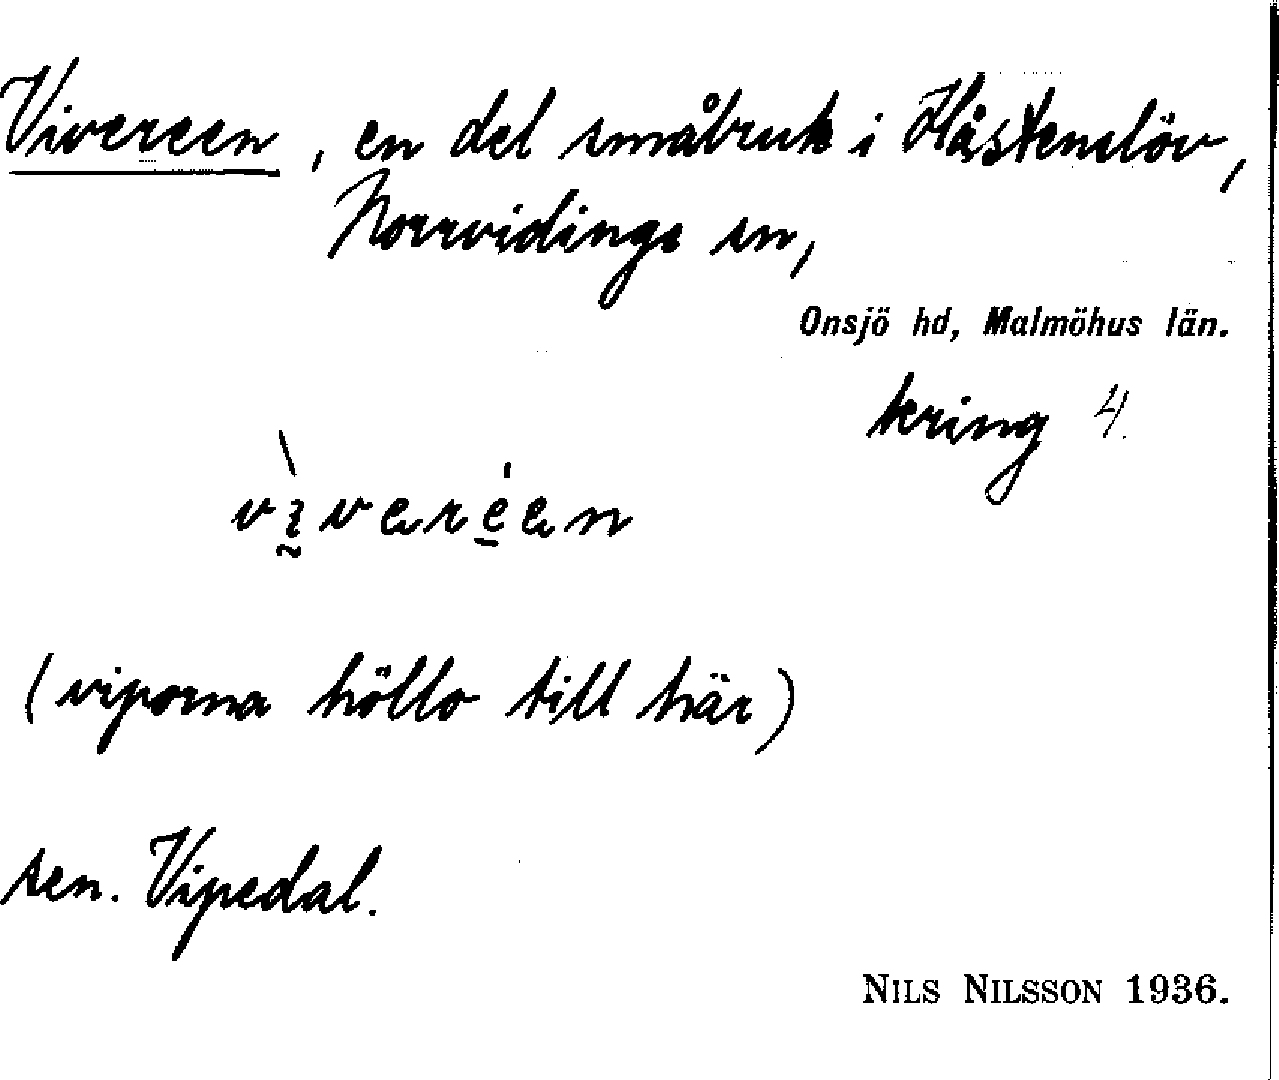 Vivereen, en del småbruk i Håstenslöv,
Norrvidinge sn,
Onsjö hd, Malmöhus län.
kring 4.
(viporna höllo till här)
sen. Vipedal.
NILS NILSSON 1936.